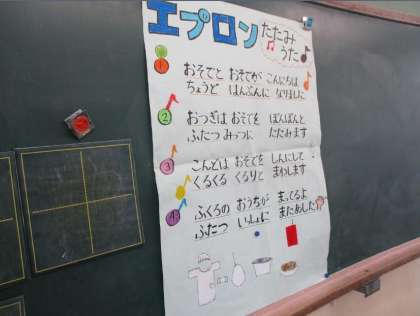 エプロン
たたみ
うた
1
おそでと おそでが こんにちは
ちょうど はんぶんに なりました
2
おつぎは おそでを ぽんぽんと
ふたつ みっつに たたみます
3
こんどは おそでを しんにして
くるくる くるりと まわします
4
ふくろの おうちが まってるよ
ふたつ いっしょに またあした!